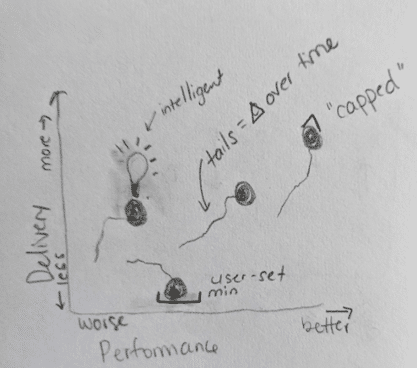 intelligent
tails = Δ over time
"capped"
more →
Delivery
← less
user-set
min
worse
better →
Performance